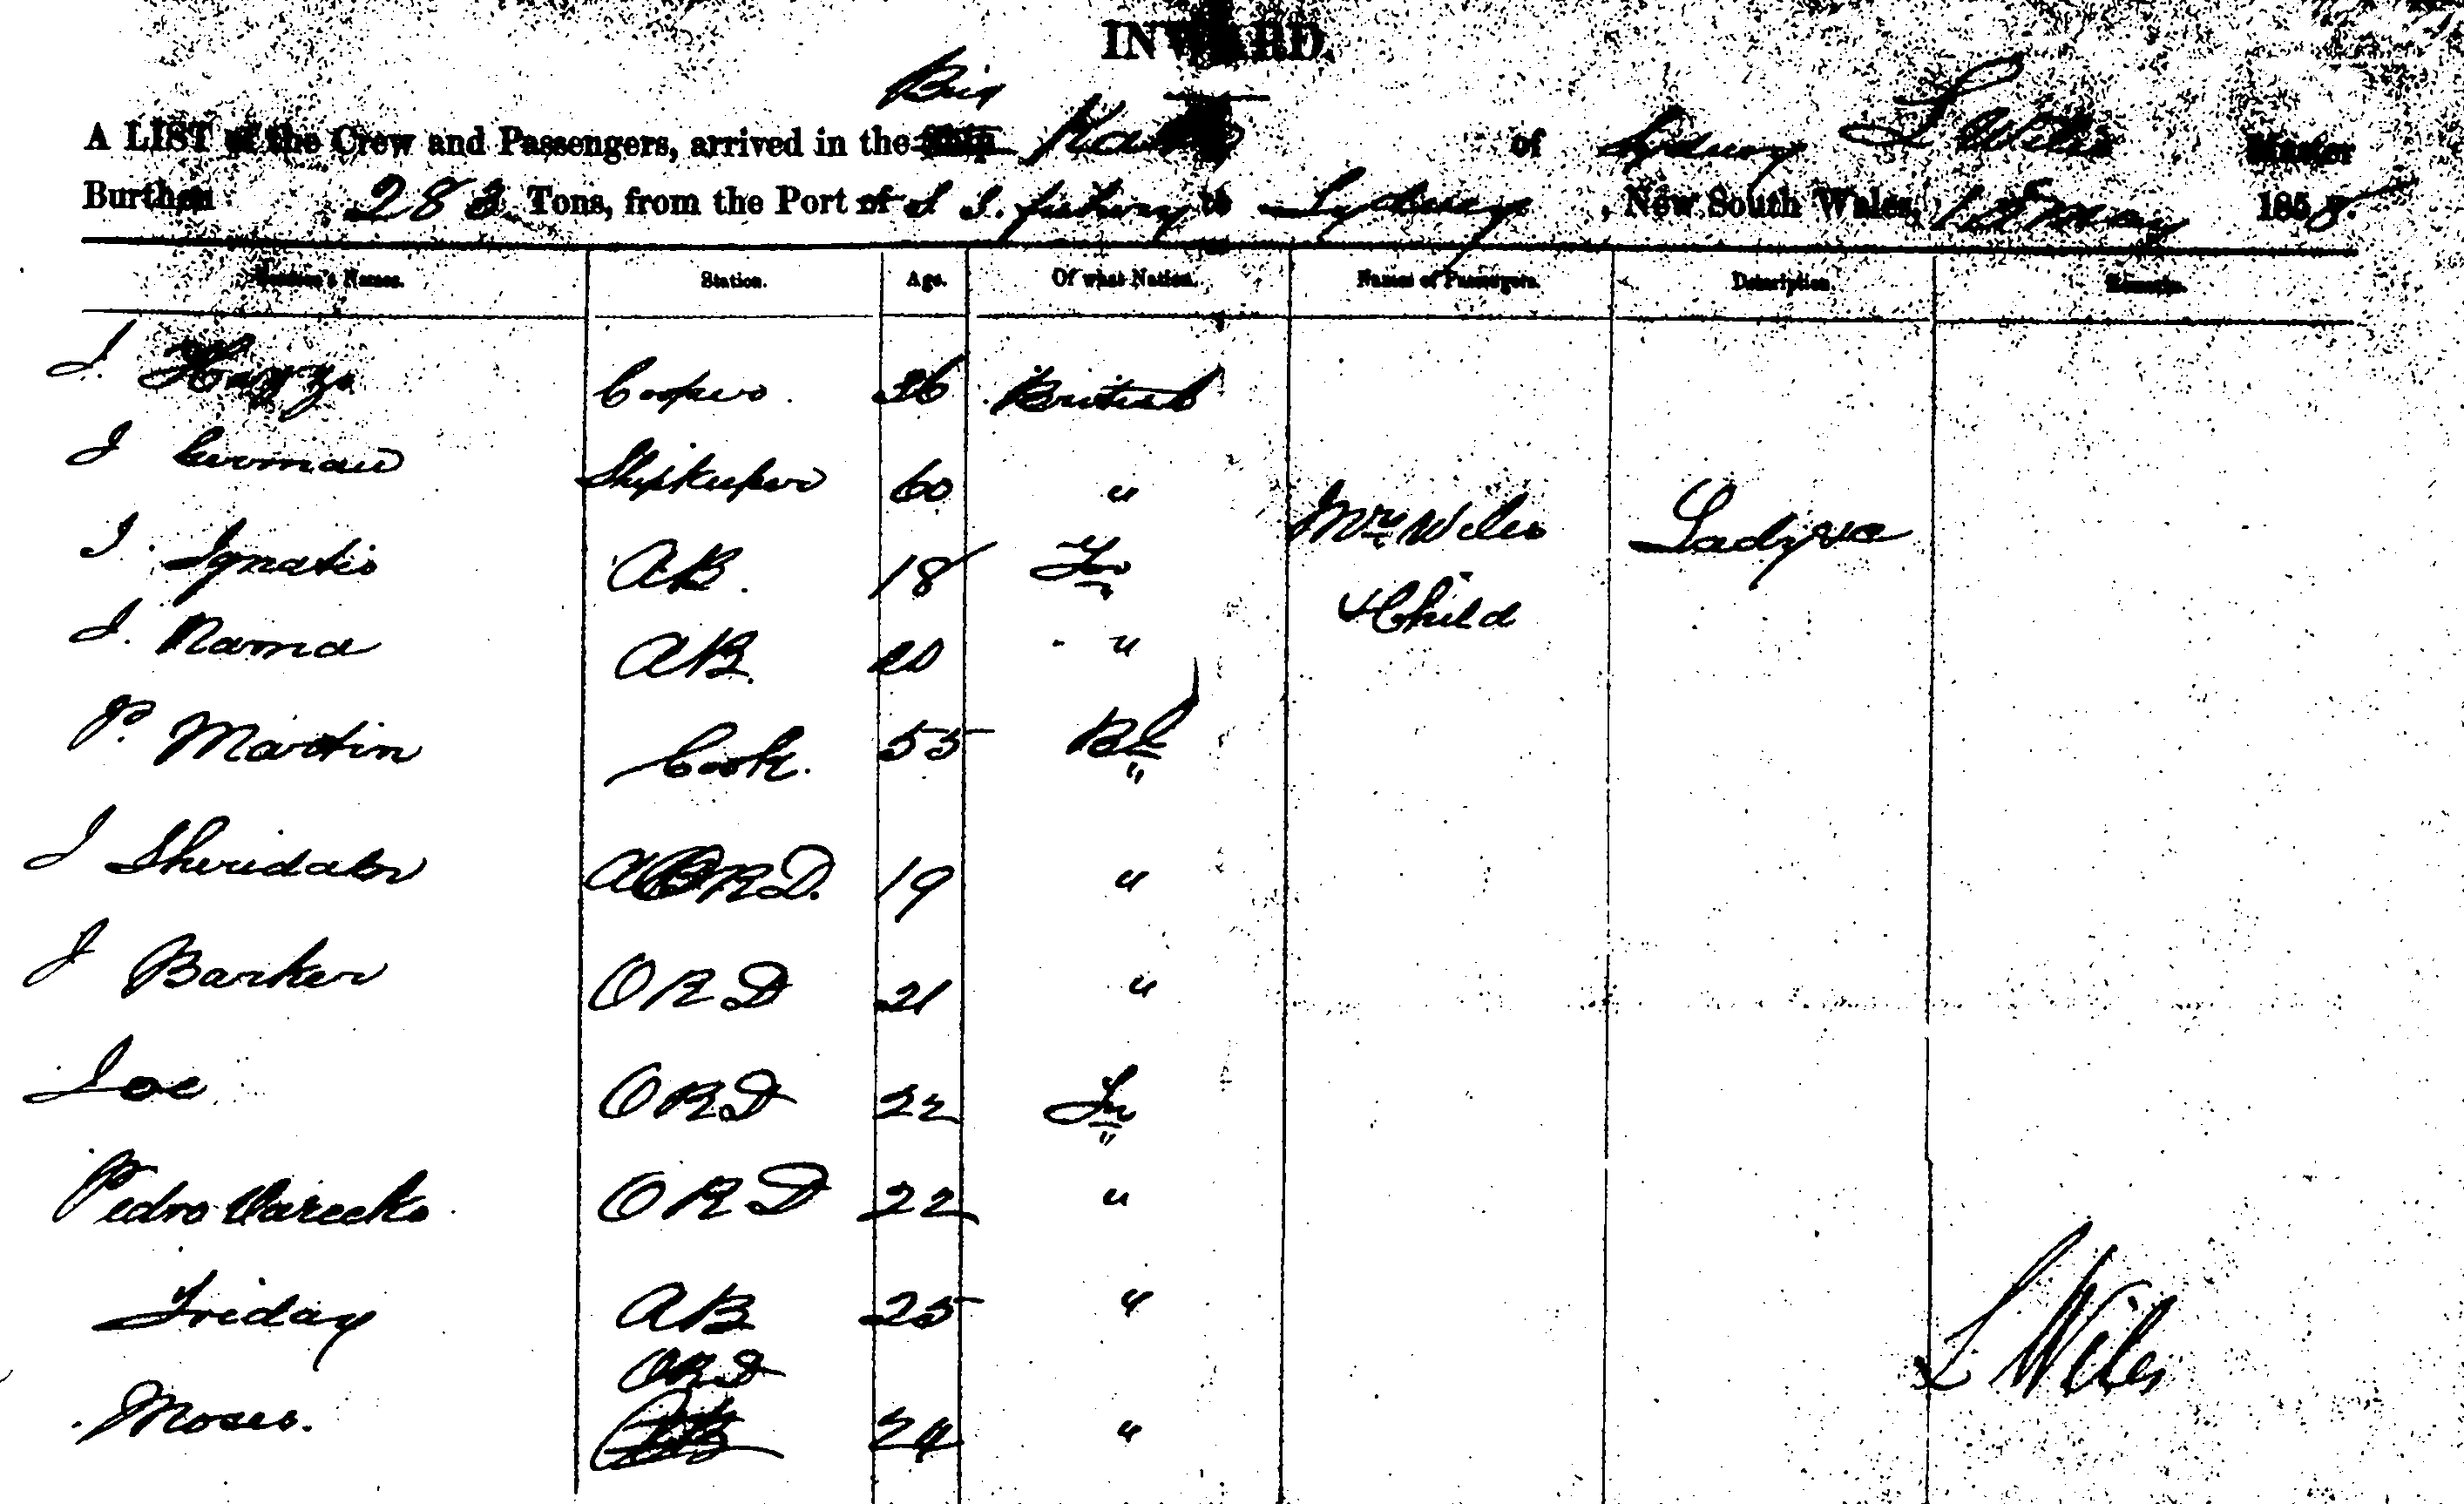 INWARD.
Brig
A LIST of the Crew and Passengers, arrived in the Ship of Sydney L Wiles Master
Burthen 282 Tons, from the Port of S S. fishery to Sydney, New South Wales, 1st May 1858.
Names. Station. Age. Of what Nation. Names of Passengers. Description. Remarks.
J. Cooper 36 British
J Shipkeeper 60 "
J. Ignatio AB. 18 Mrs Wiles Lady
J. AB. 20 " & Child
P. Martin Cook. 55 "
J Sheridan ORD. 19 "
J Barker ORD 21 "
Joe ORD 22
Pedro ORD 22 "
Friday AB 25 "
ORD
Moses. 24 "
L Wiles